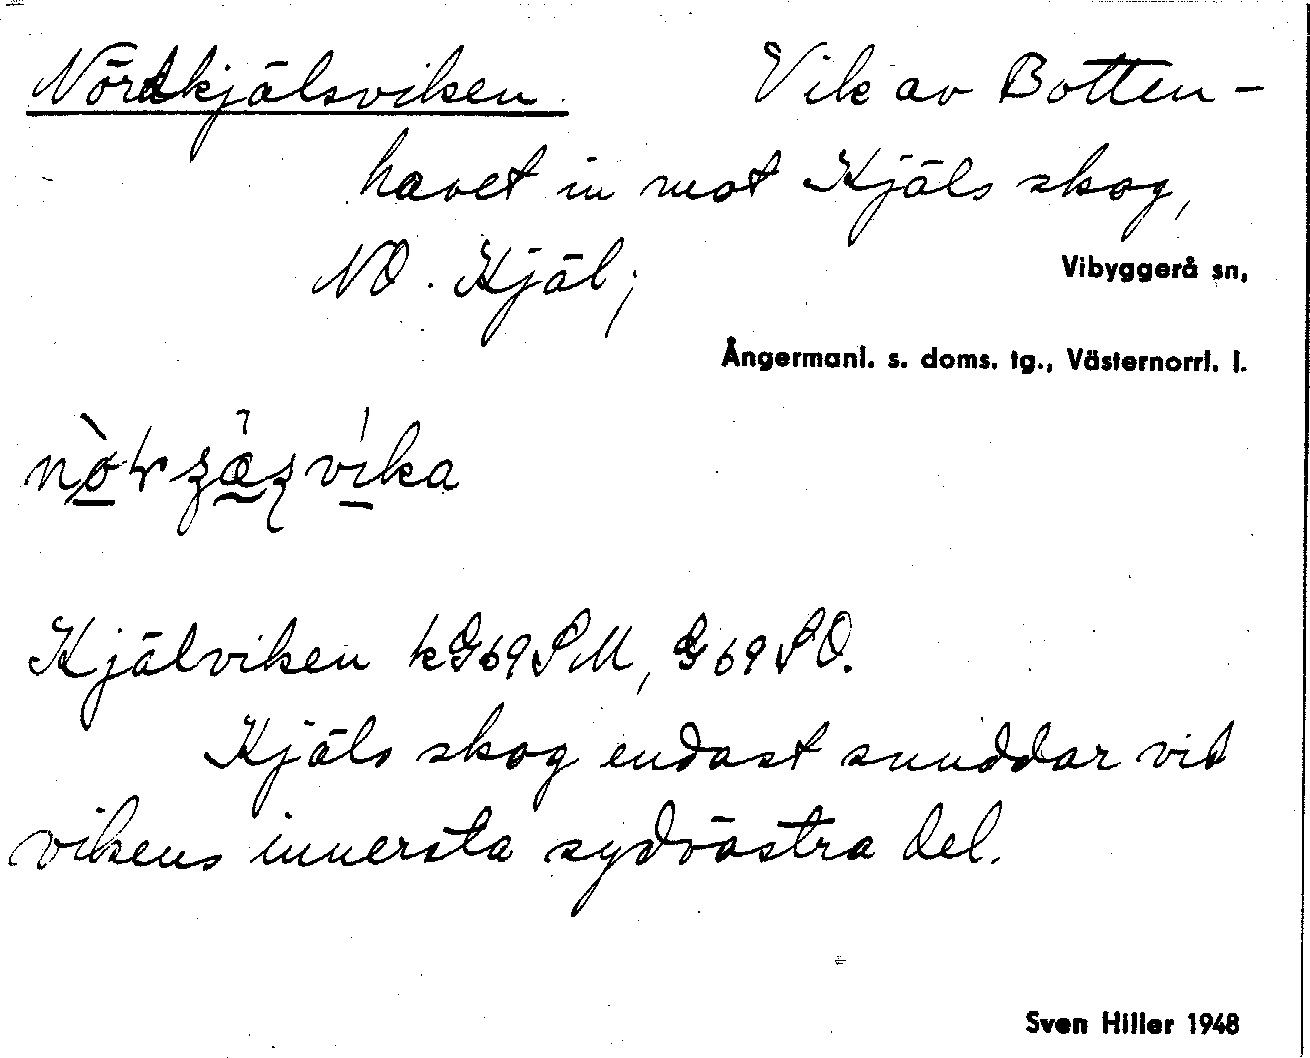 Nördkjälsviken Vik av Botten-
havet in mot Kjäls skog,
NO. Kjäl;
Vibyggerå sn,
Ångermanl. s. doms. tg., Västernorrl. l.
Kjälviken kG69SM, G69SO.
Kjäls skog endast snuddar vid
vikens innersta sydvästra del.
Sven Hiller 1948